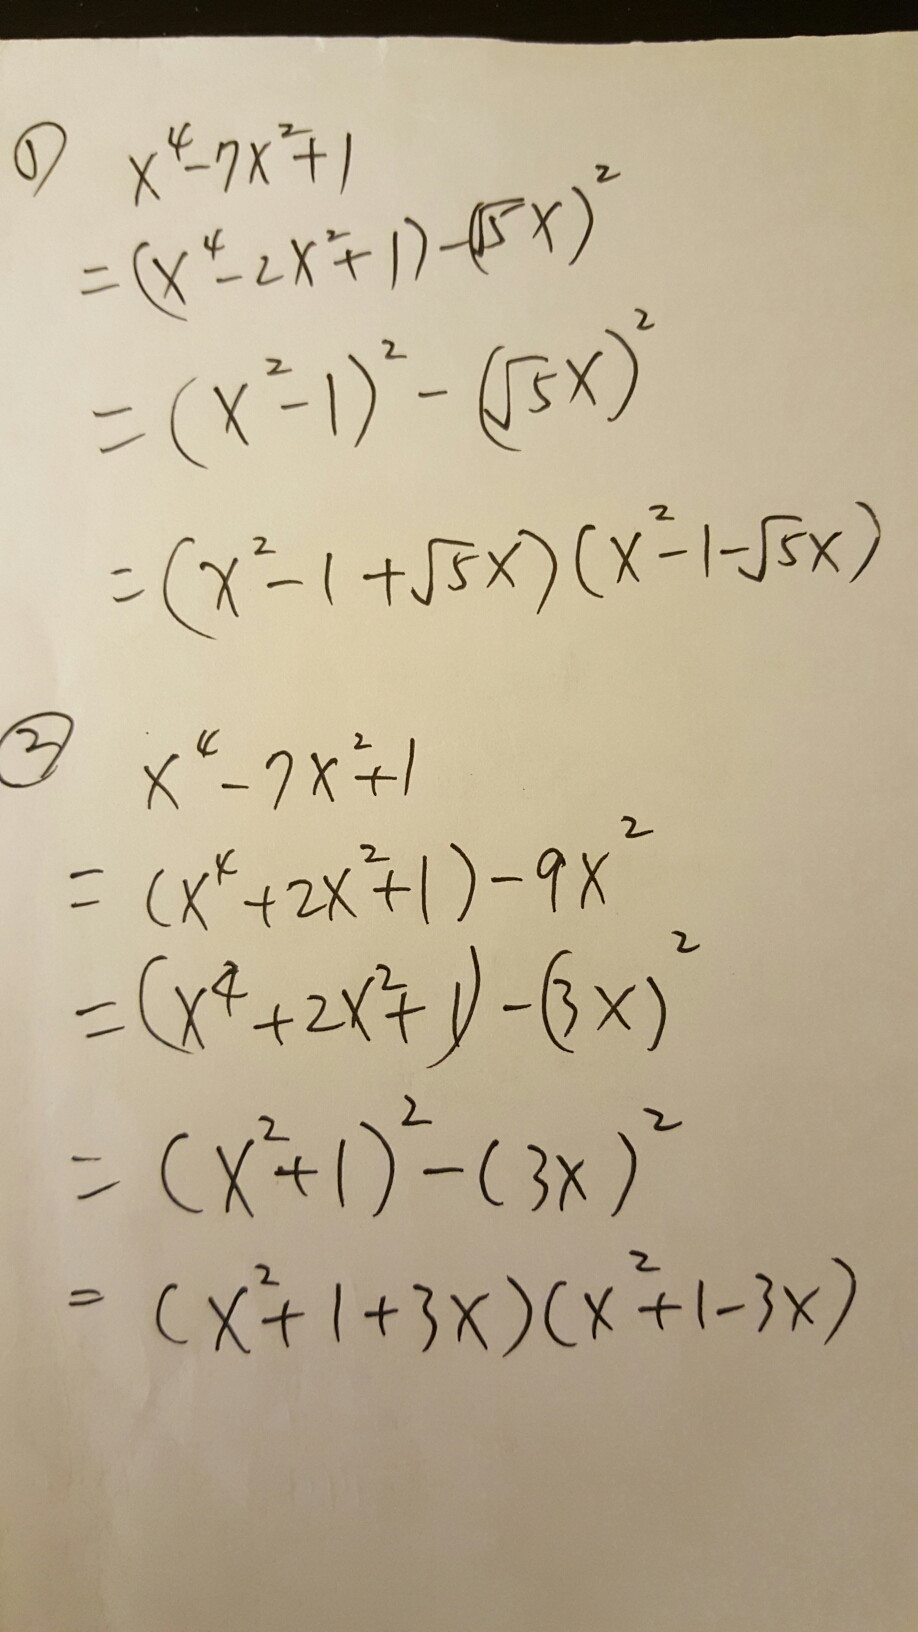 ① x⁴-7x²+1
=(x⁴-2x²+1)-(√5x)²
=(x²-1)²-(√5x)²
=(x²-1+√5x)(x²-1-√5x)
② x⁴-7x²+1
=(x⁴+2x²+1)-9x²
=(x⁴+2x²+1)-(3x)²
=(x²+1)²-(3x)²
=(x²+1+3x)(x²+1-3x)